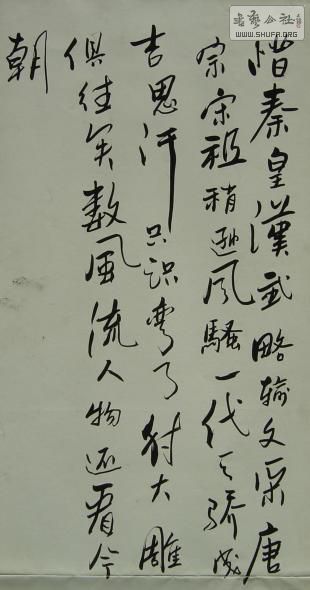 書藝公社
WWW.SHUFA.ORG
惜秦皇漢武略输文采唐
宗宋祖稍逊风騷一代天骄成
吉思汗只识弯弓射大雕
俱往矣数風流人物还看今
朝